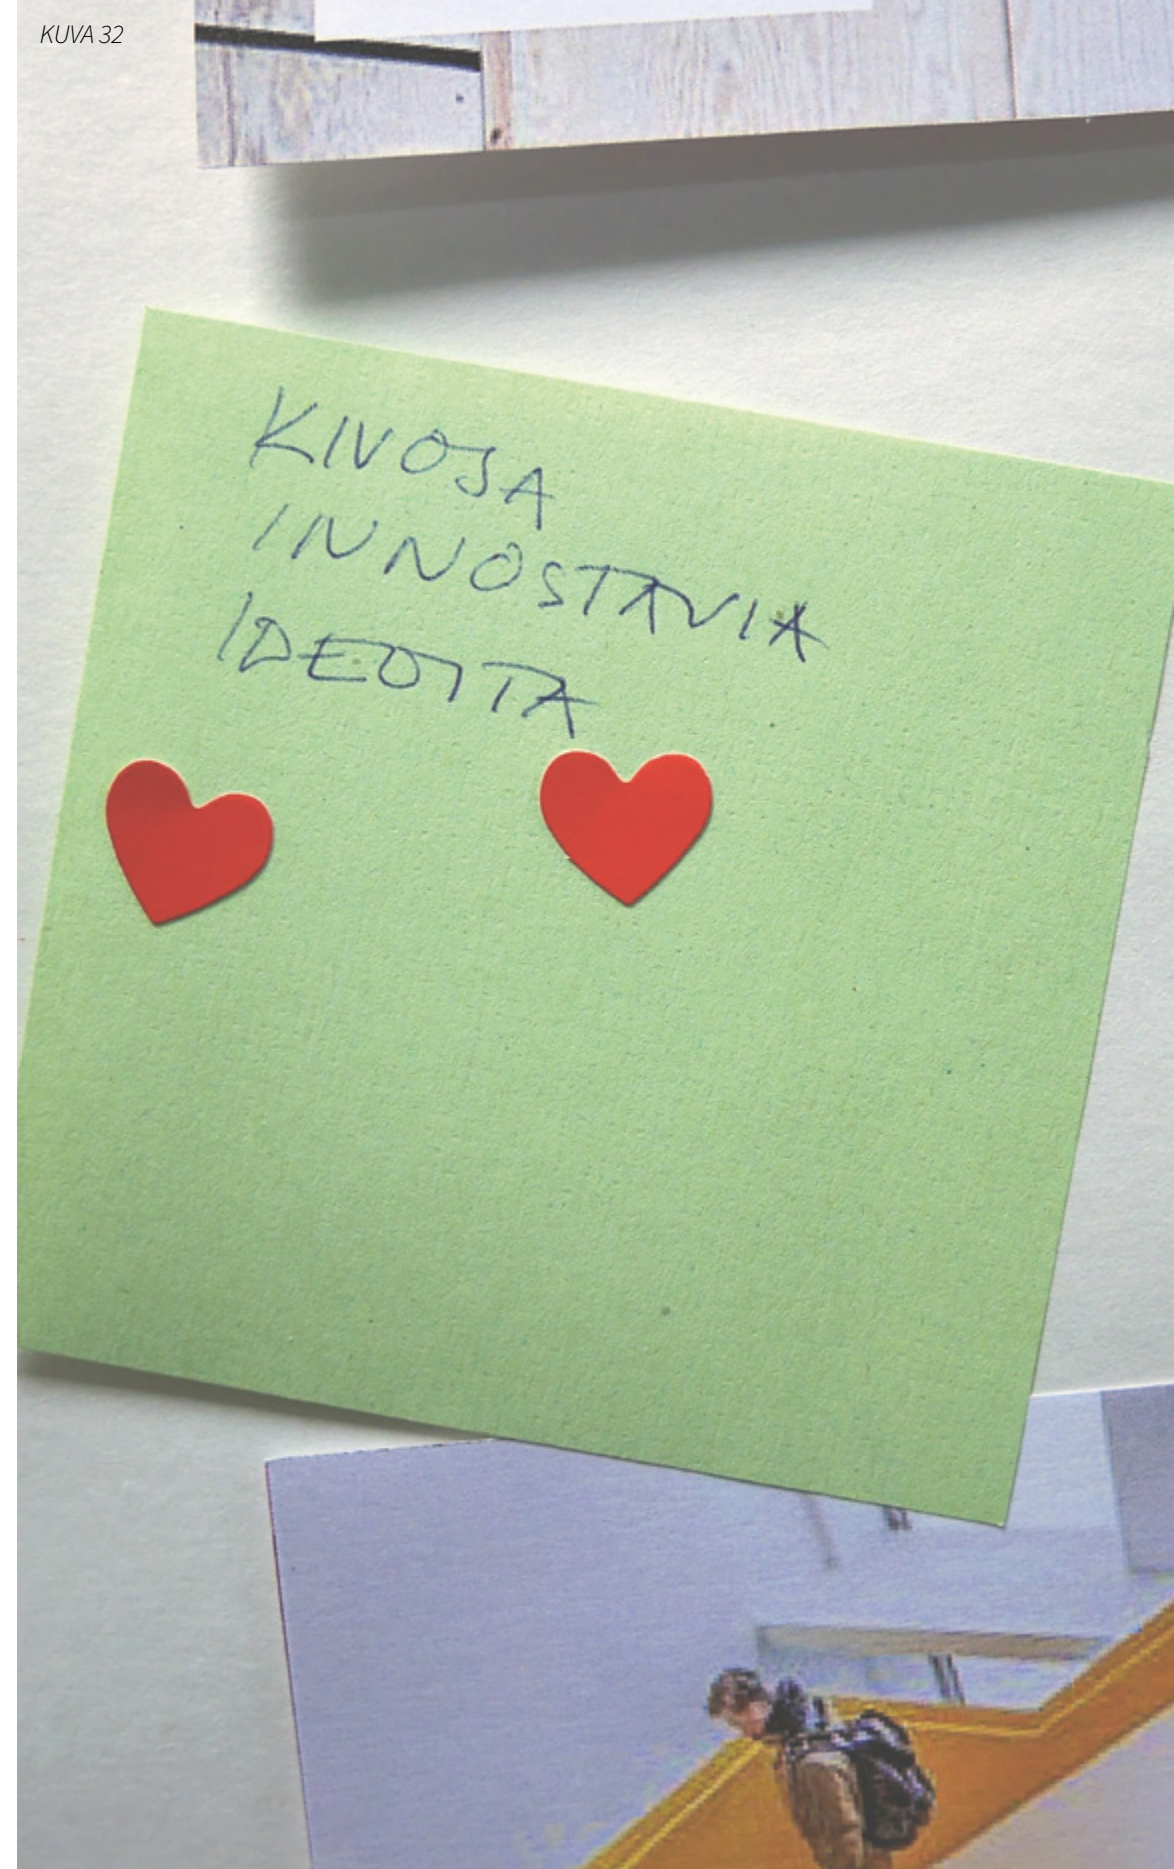 KUVA 32
KIVOJA
INNOSTAVIA
IDEOITA